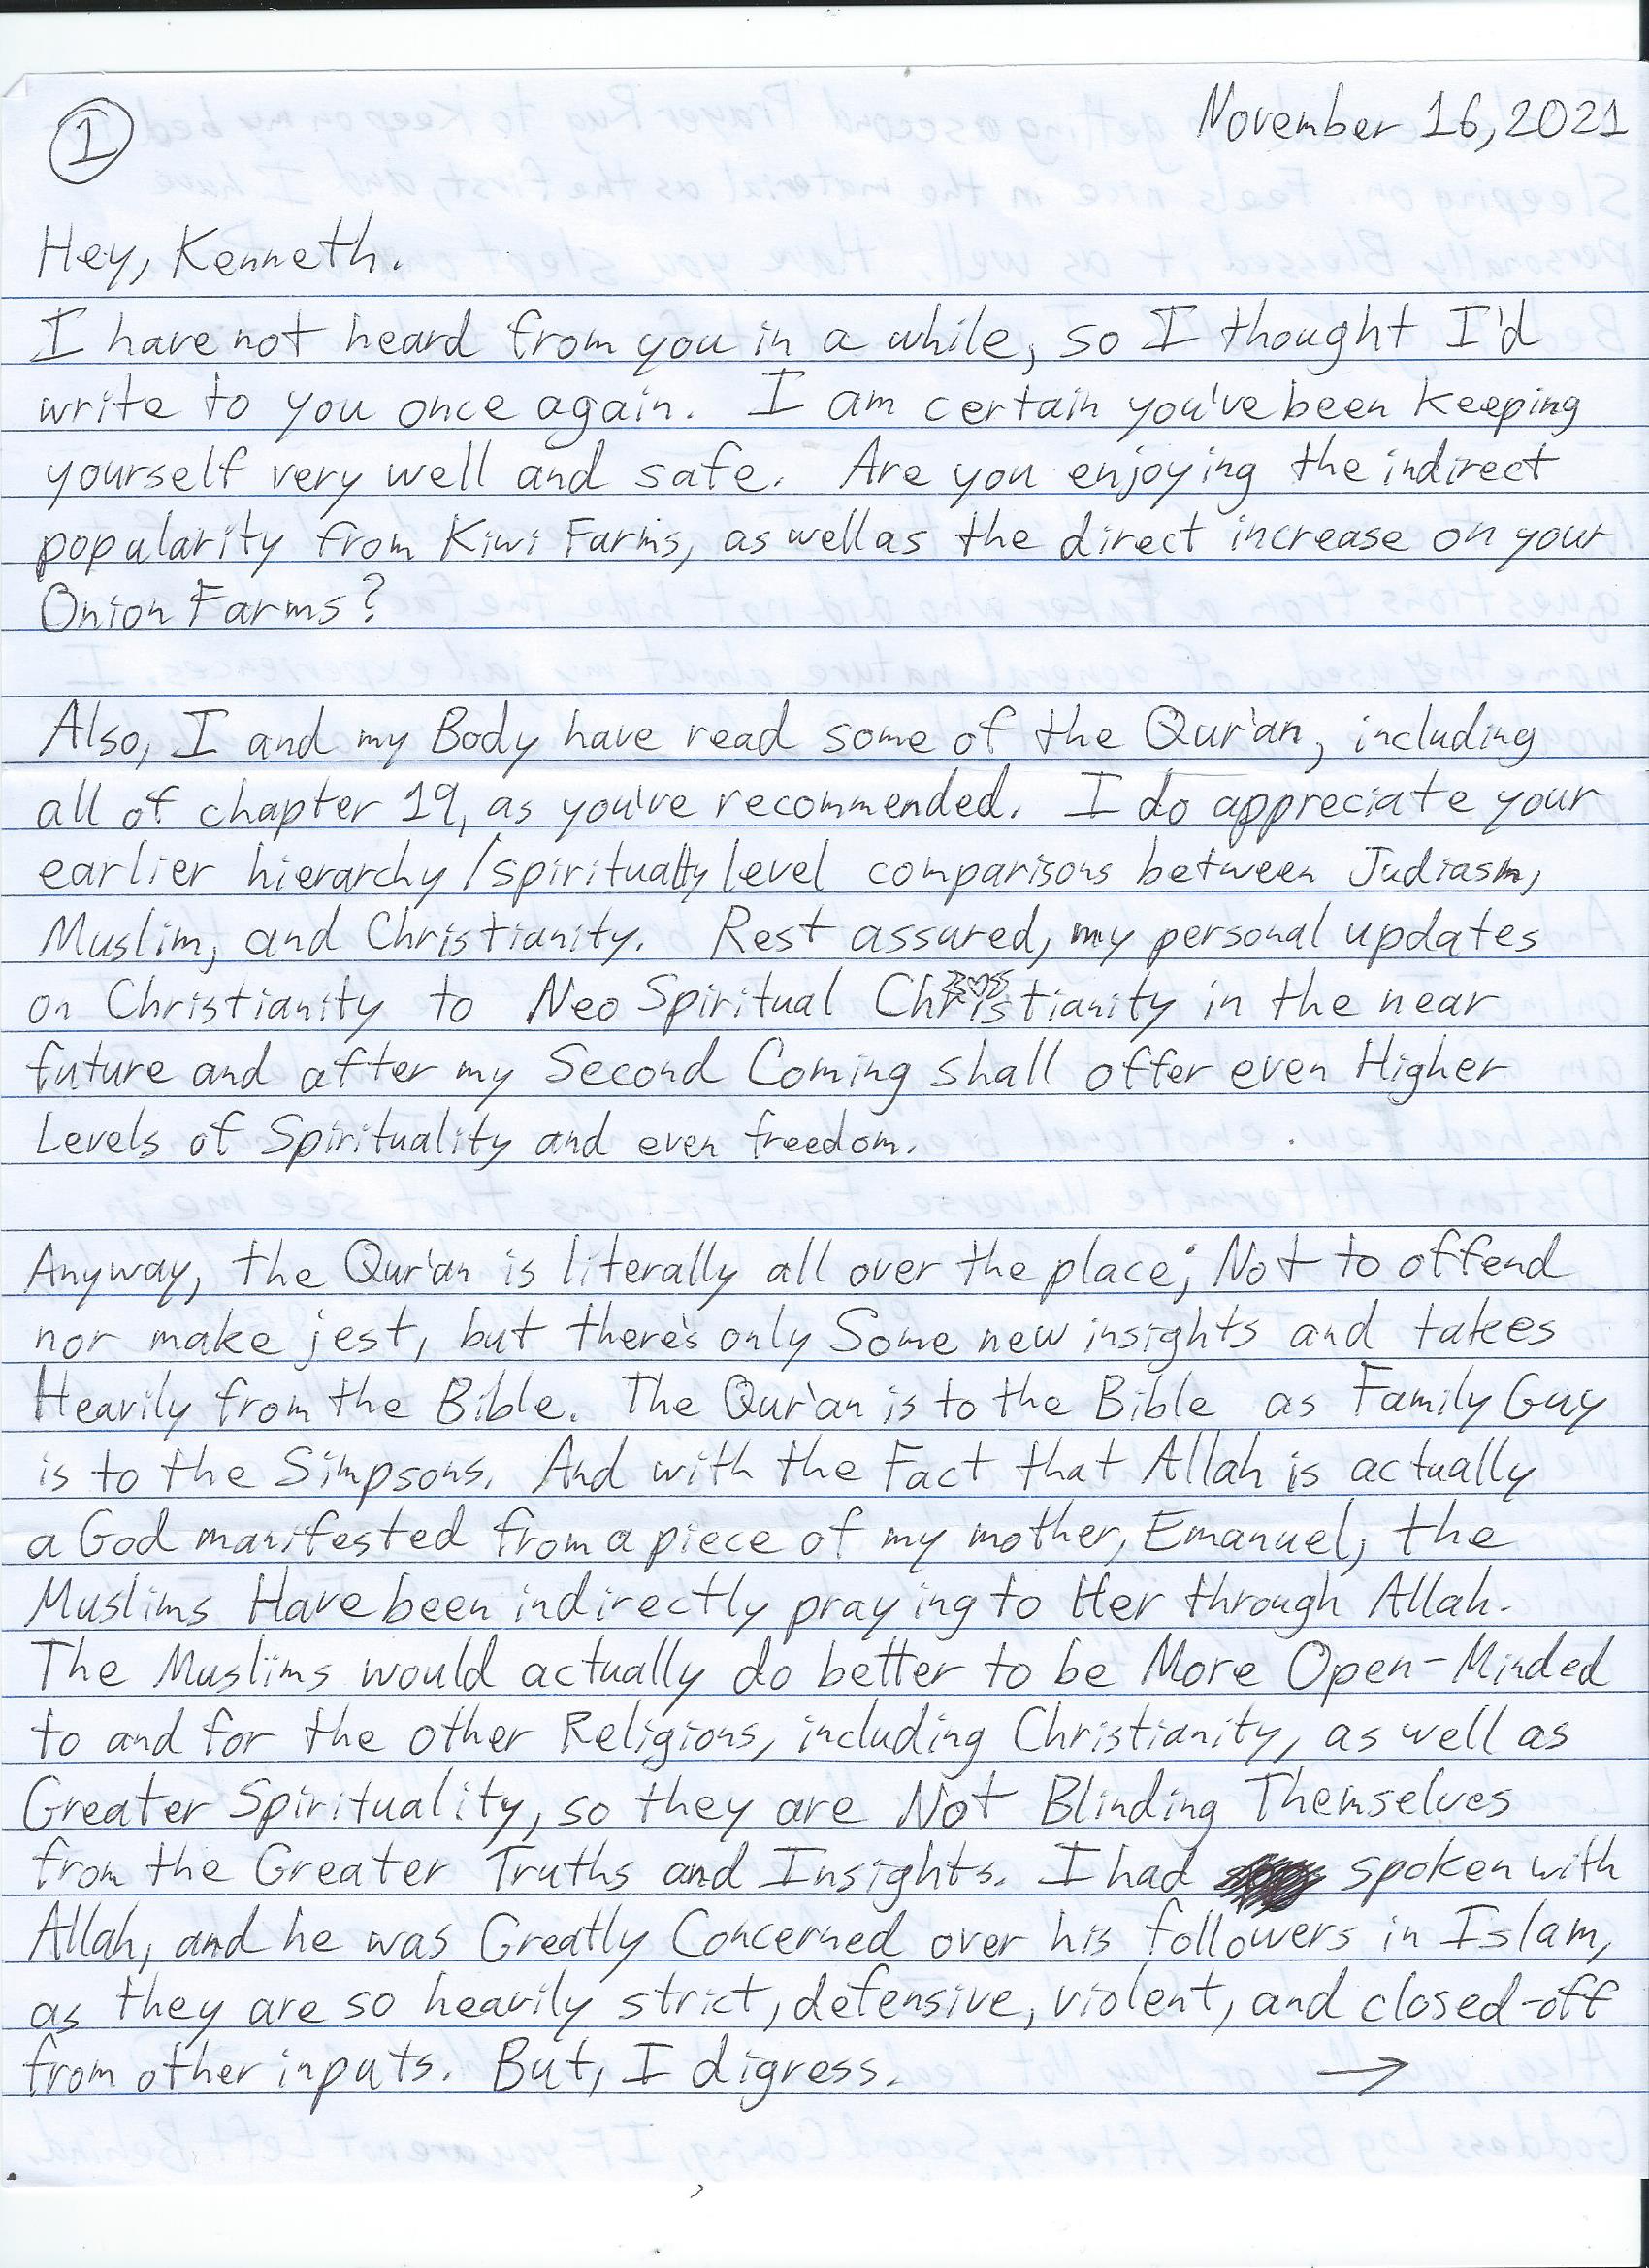 1
November 16, 2021
Hey, Kenneth.
I have not heard from you in a while, so I thought I'd
write to you once again. I am certain you've been keeping
yourself very well and safe. Are you enjoying the indirect
popularity from Kiwi Farms, as well as the direct increase on your
Onion Farms?
Also, I and my Body have read some of the Qur'an, including
all of chapter 19, as you've recommended. I do appreciate your
earlier hierarchy/spirituality level comparisons between Judiasm,
Muslim, and Christianity. Rest assured, my personal updates
on Christianity to Neo Spiritual Christianity in the near
future and after my Second Coming shall offer even Higher
Levels of Spirituality and even freedom.
Anyway, the Qur'an is literally all over the place; Not to offend
nor make jest, but there's only Some new insights and takes
Heavily from the Bible. The Qur'an is to the Bible as Family Guy
is to the Simpsons. And with the Fact that Allah is actually
a God manifested from a piece of my mother, Emanuel, the
Muslims Have been indirectly praying to Her through Allah.
The Muslims would actually do better to be More Open-Minded
to and for the other Religions, including Christianity, as well as
Greater Spirituality, so they are Not Blinding Themselves
from the Greater Truths and Insights. I had spoken with
Allah, and he was Greatly Concerned over his followers in Islam,
as they are so heavily strict, defensive, violent, and closed-off
from other inputs. But, I digress. →